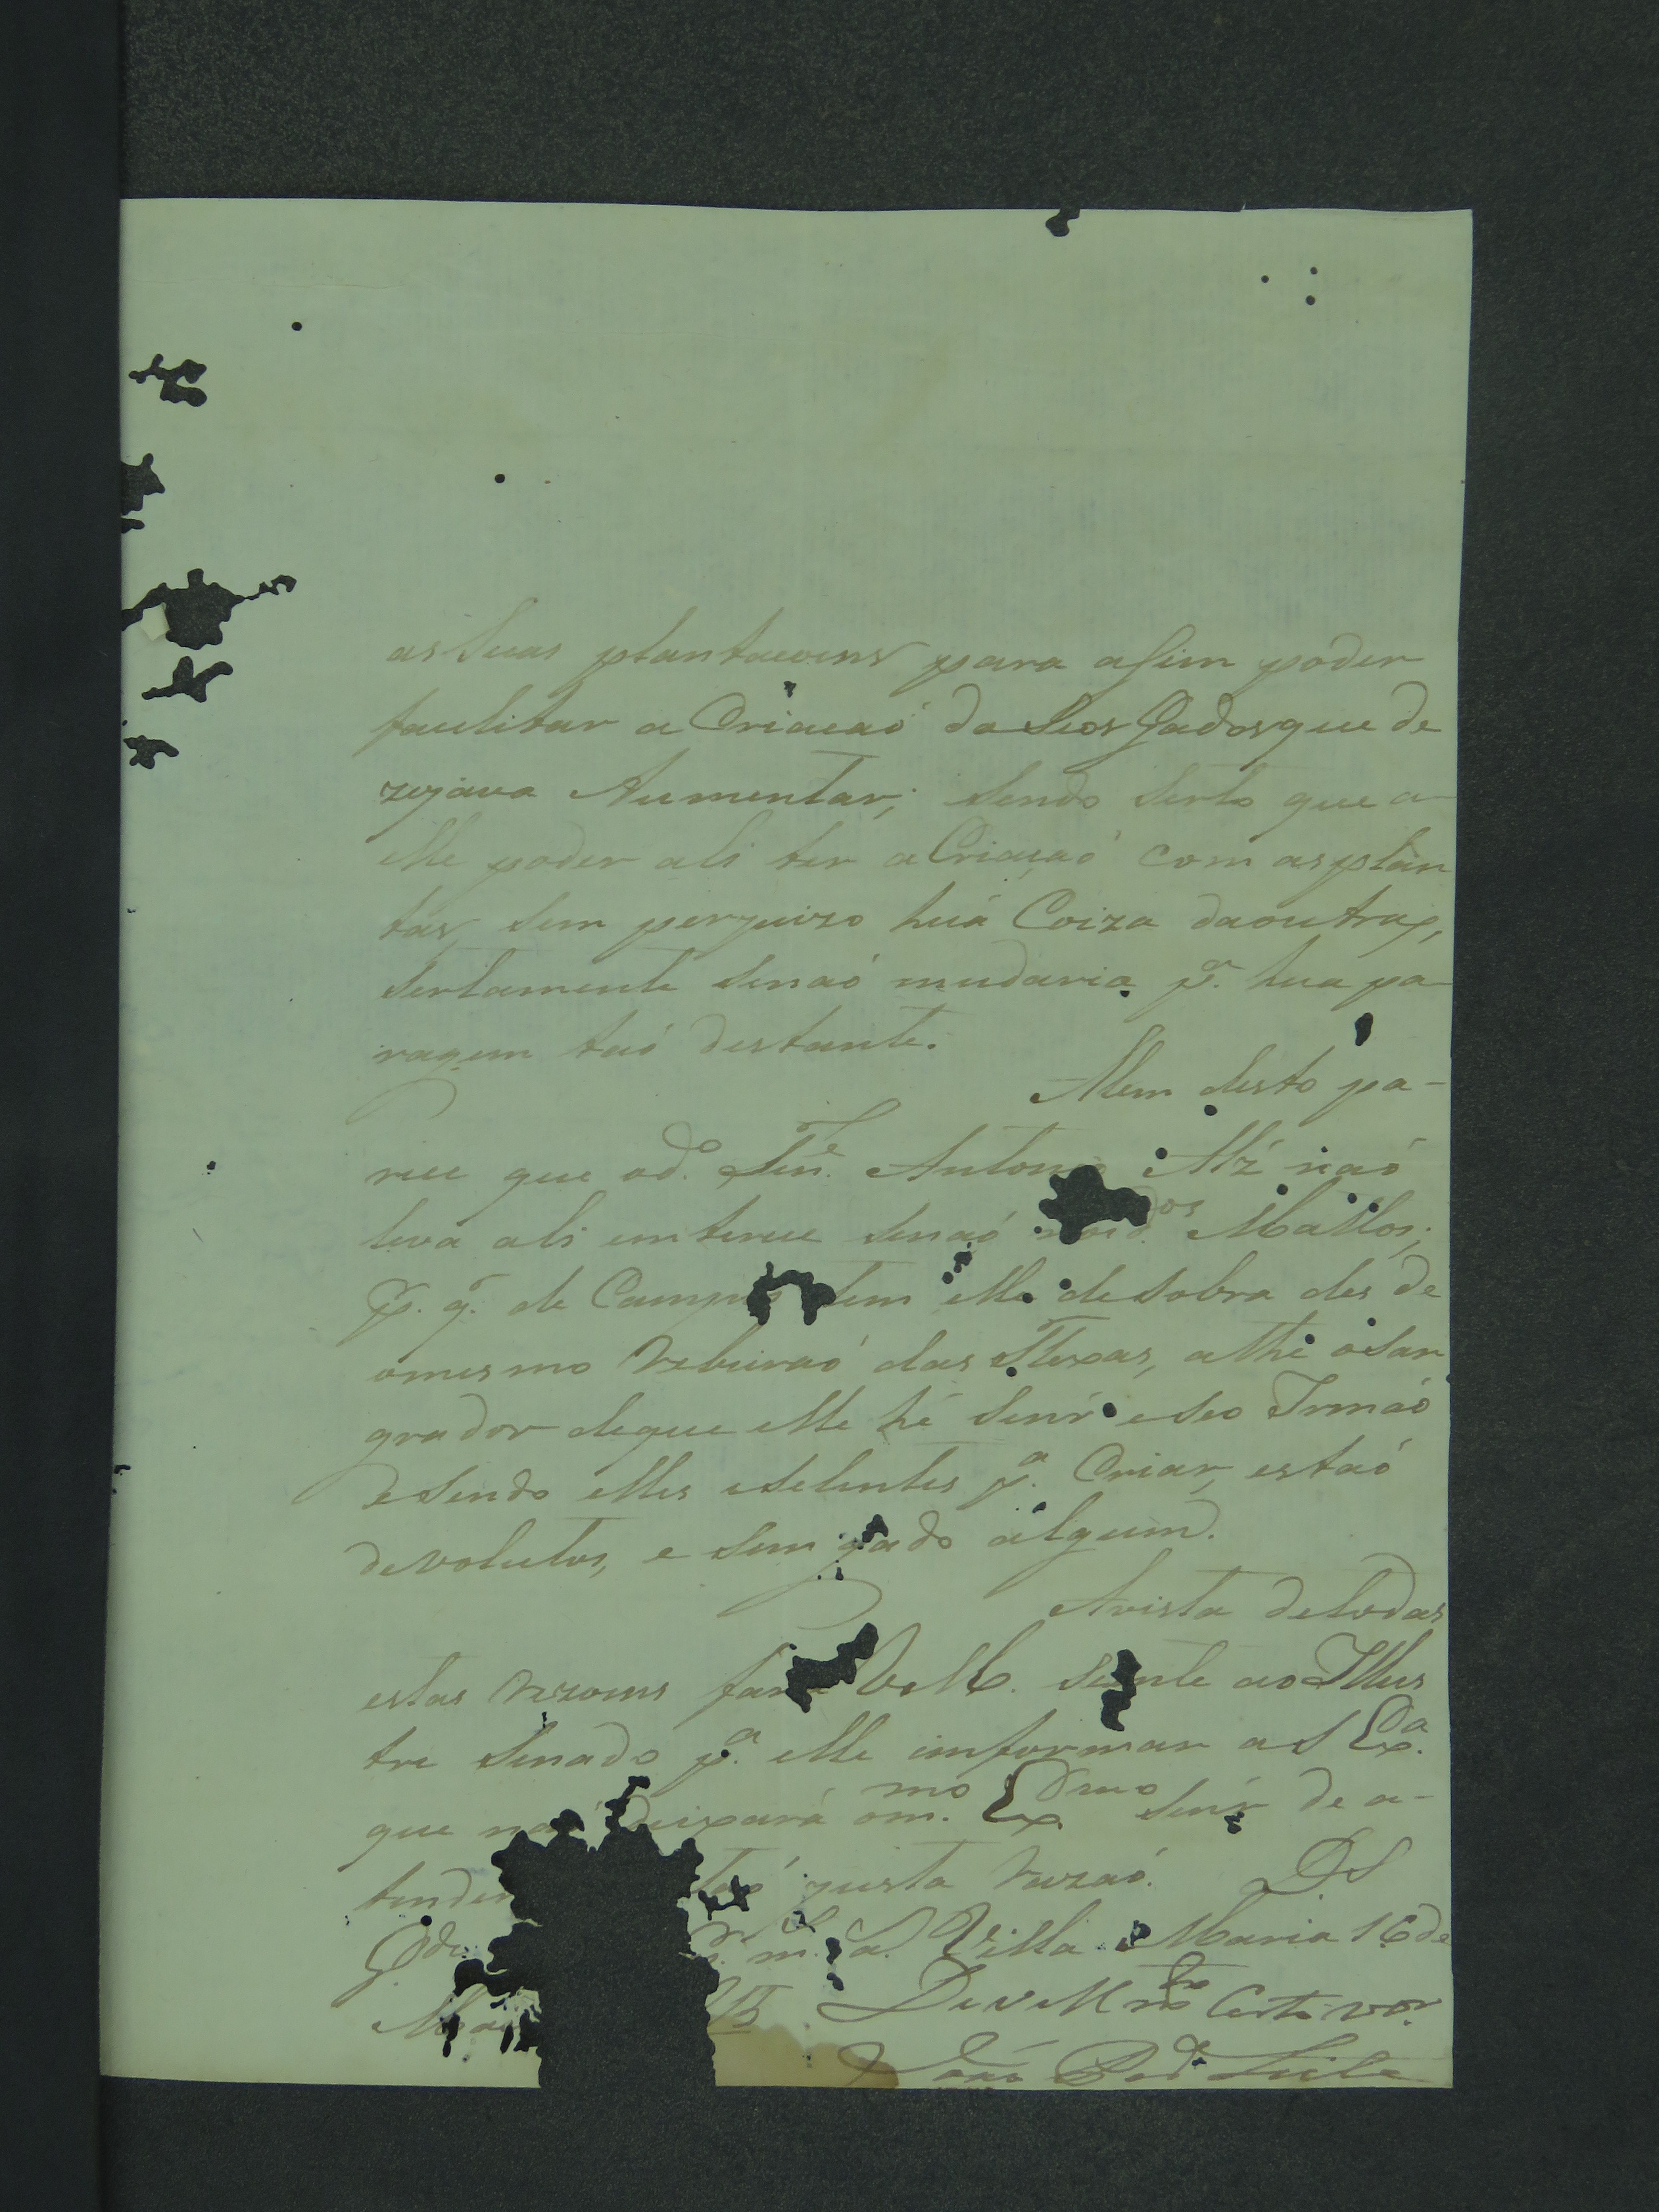 as Suas plantacoens para asim poder
facilitar a Criacaó da Seos Gados que de
zejava Aumentar; Sendo Serto que a
elle poder ali ter a Criaçaó com as plan
tas, Sem perjuizo huá Coiza da outra,
Sertamente Senaó mudaria pª. hua pa-
ragem taó destante.
Alem desto pa-
rece que o dº. Tenᵉ. Antonio Alź naó
leva ali enterece Senaó nos dᵒˢ Mattos,
p. q̃. de Campos tem elle de Sobra des de
o mesmo Rebeiraó das Flexas, athe o San
grador de que elle hé Senr̃ e Seo Irmaó
e Sendo elles eselentes pª. Criar, estaó
devolutos, e Sem gado algum.
Avista de todas
estas rezoens fará VM. Siente ao Illus
tre Senado pª. elle informar a S Exª.
que naó deixará o mᵐᵒ. Exᵐᵒ Senr̃ de a-
tender taó justa razaó. DS
Gᵈᵉ m. a. Villa Maria 16 de
De VM
Joaó Leite